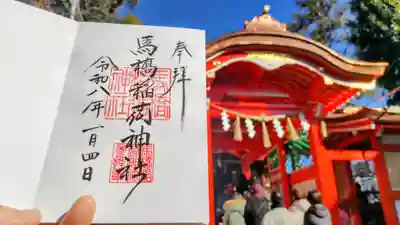 奉拝
馬橋稲荷神社
令和八年一月四日